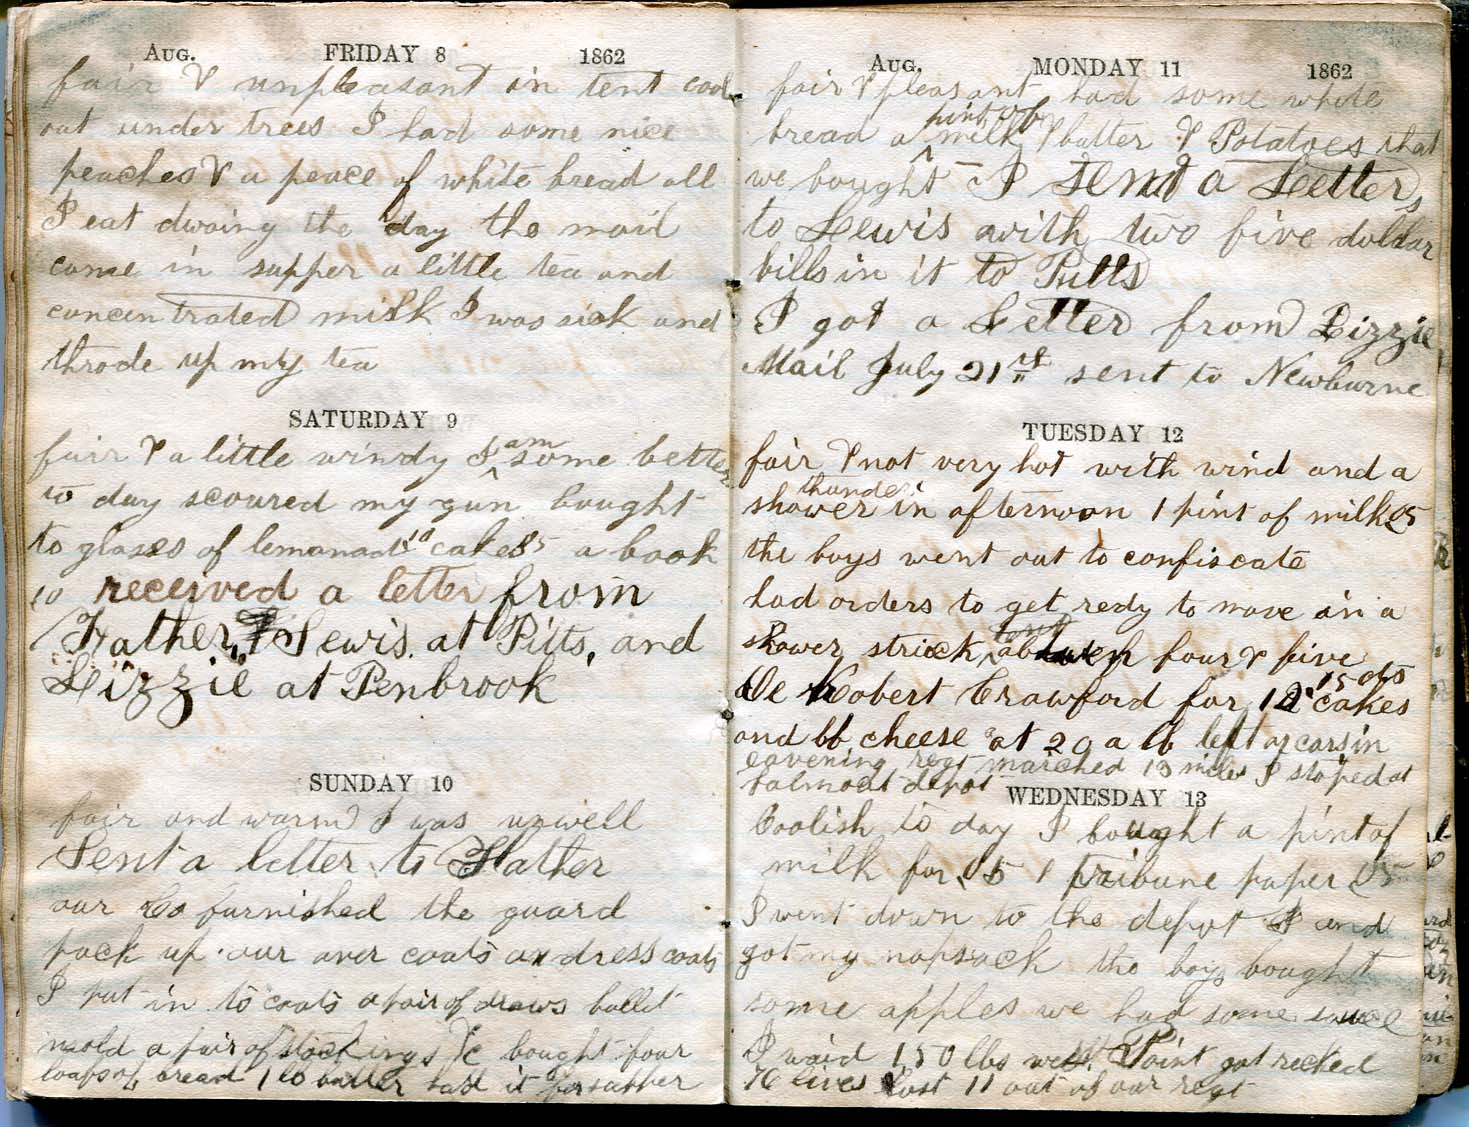 Aug. FRIDAY 8 1862
fair & unpleasant in tent cool
out under trees I had some nice
peaches & a peace of white bread all
I eat dwoing the day the mail
came in supper a little tea and
concentrated milk I was sick and
throde up my tea
SATURDAY 9
fair & a little windy I am some better
to day scoured my gun bought
to glases of lemonade 10 cakes 5 a book
10 received a letter from
Father, & Lewis. at Pitts, and
Lizzie at Penbrook
SUNDAY 10
fair and warm I was unwell
Sent a letter to Father
our Co furnished the guard
pack up our over coats an dress coats
I put in to coats a pair of draws bullit
mold a pair of stockings &c bought four
loafs of bread 1 lb butter had it for supper
Aug. MONDAY 11 1862
fair & pleasant had some white
bread a pint of milk & butter & Potatoes that
we bought - I Sent a Letter,
to Lewis with two five dollar
bills in it to Pitts
I got a Letter from Lizzie
Mail July 21st sent to Newburne
TUESDAY 12
fair & not very hot with wind and a
thunder
shower in afternoon 1 pint of milk 05
the boys went out to confiscate
had orders to get redy to move in a
shower strick tent about four & five
Robert Crawford for 12 cakes 15 cts
and lb cheese at 20 a lb left as cars in
eavening regt marched 13 miles I stoped at
Falmoat depot
WEDNESDAY 13
Coolish to day I bought a pint of
milk for 05 1 tribune paper 05
I went down to the depot I and
got my napsack the boys bought
some apples we had some
I waid 150 lbs west Point got recked
76 lives lost 11 out of our regt